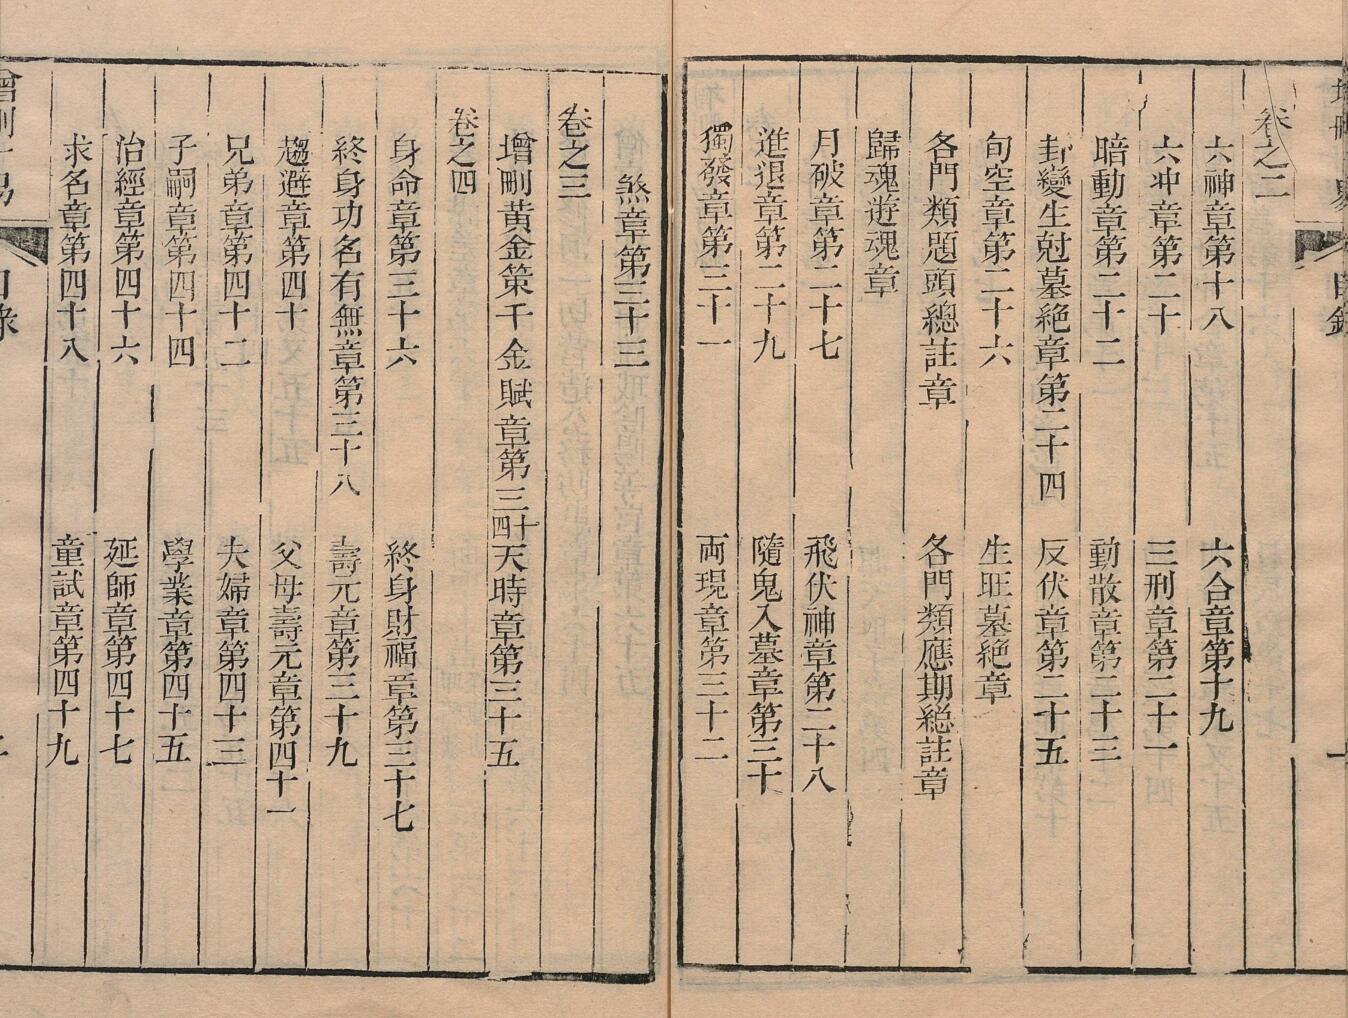 卷之二
六神章第十八
六合章第十九
六冲章第二十
三刑章第二十一
暗動章第二十二
動散章第二十三
卦變生尅墓絶章第二十四
反伏章第二十五
旬空章第二十六
生旺墓絶章
各門類題頭總註章
各門類應期総註章
歸魂遊魂章
月破章第二十七
飛伏神章第二十八
進退章第二十九
隨鬼入墓章第三十
獨發章第三十一
両現章第三十二
煞章第三十三
卷之三
增刪黃金策千金賦章第三十四
天時章第三十五
卷之四
身命章第三十六
終身財福章第三十七
終身功名有無章第三十八
壽元章第三十九
趨避章第四十
父母壽元章第四十一
兄弟章第四十二
夫婦章第四十三
子嗣章第四十四
學業章第四十五
治經章第四十六
延師章第四十七
求名章第四十八
童試章第四十九
目錄